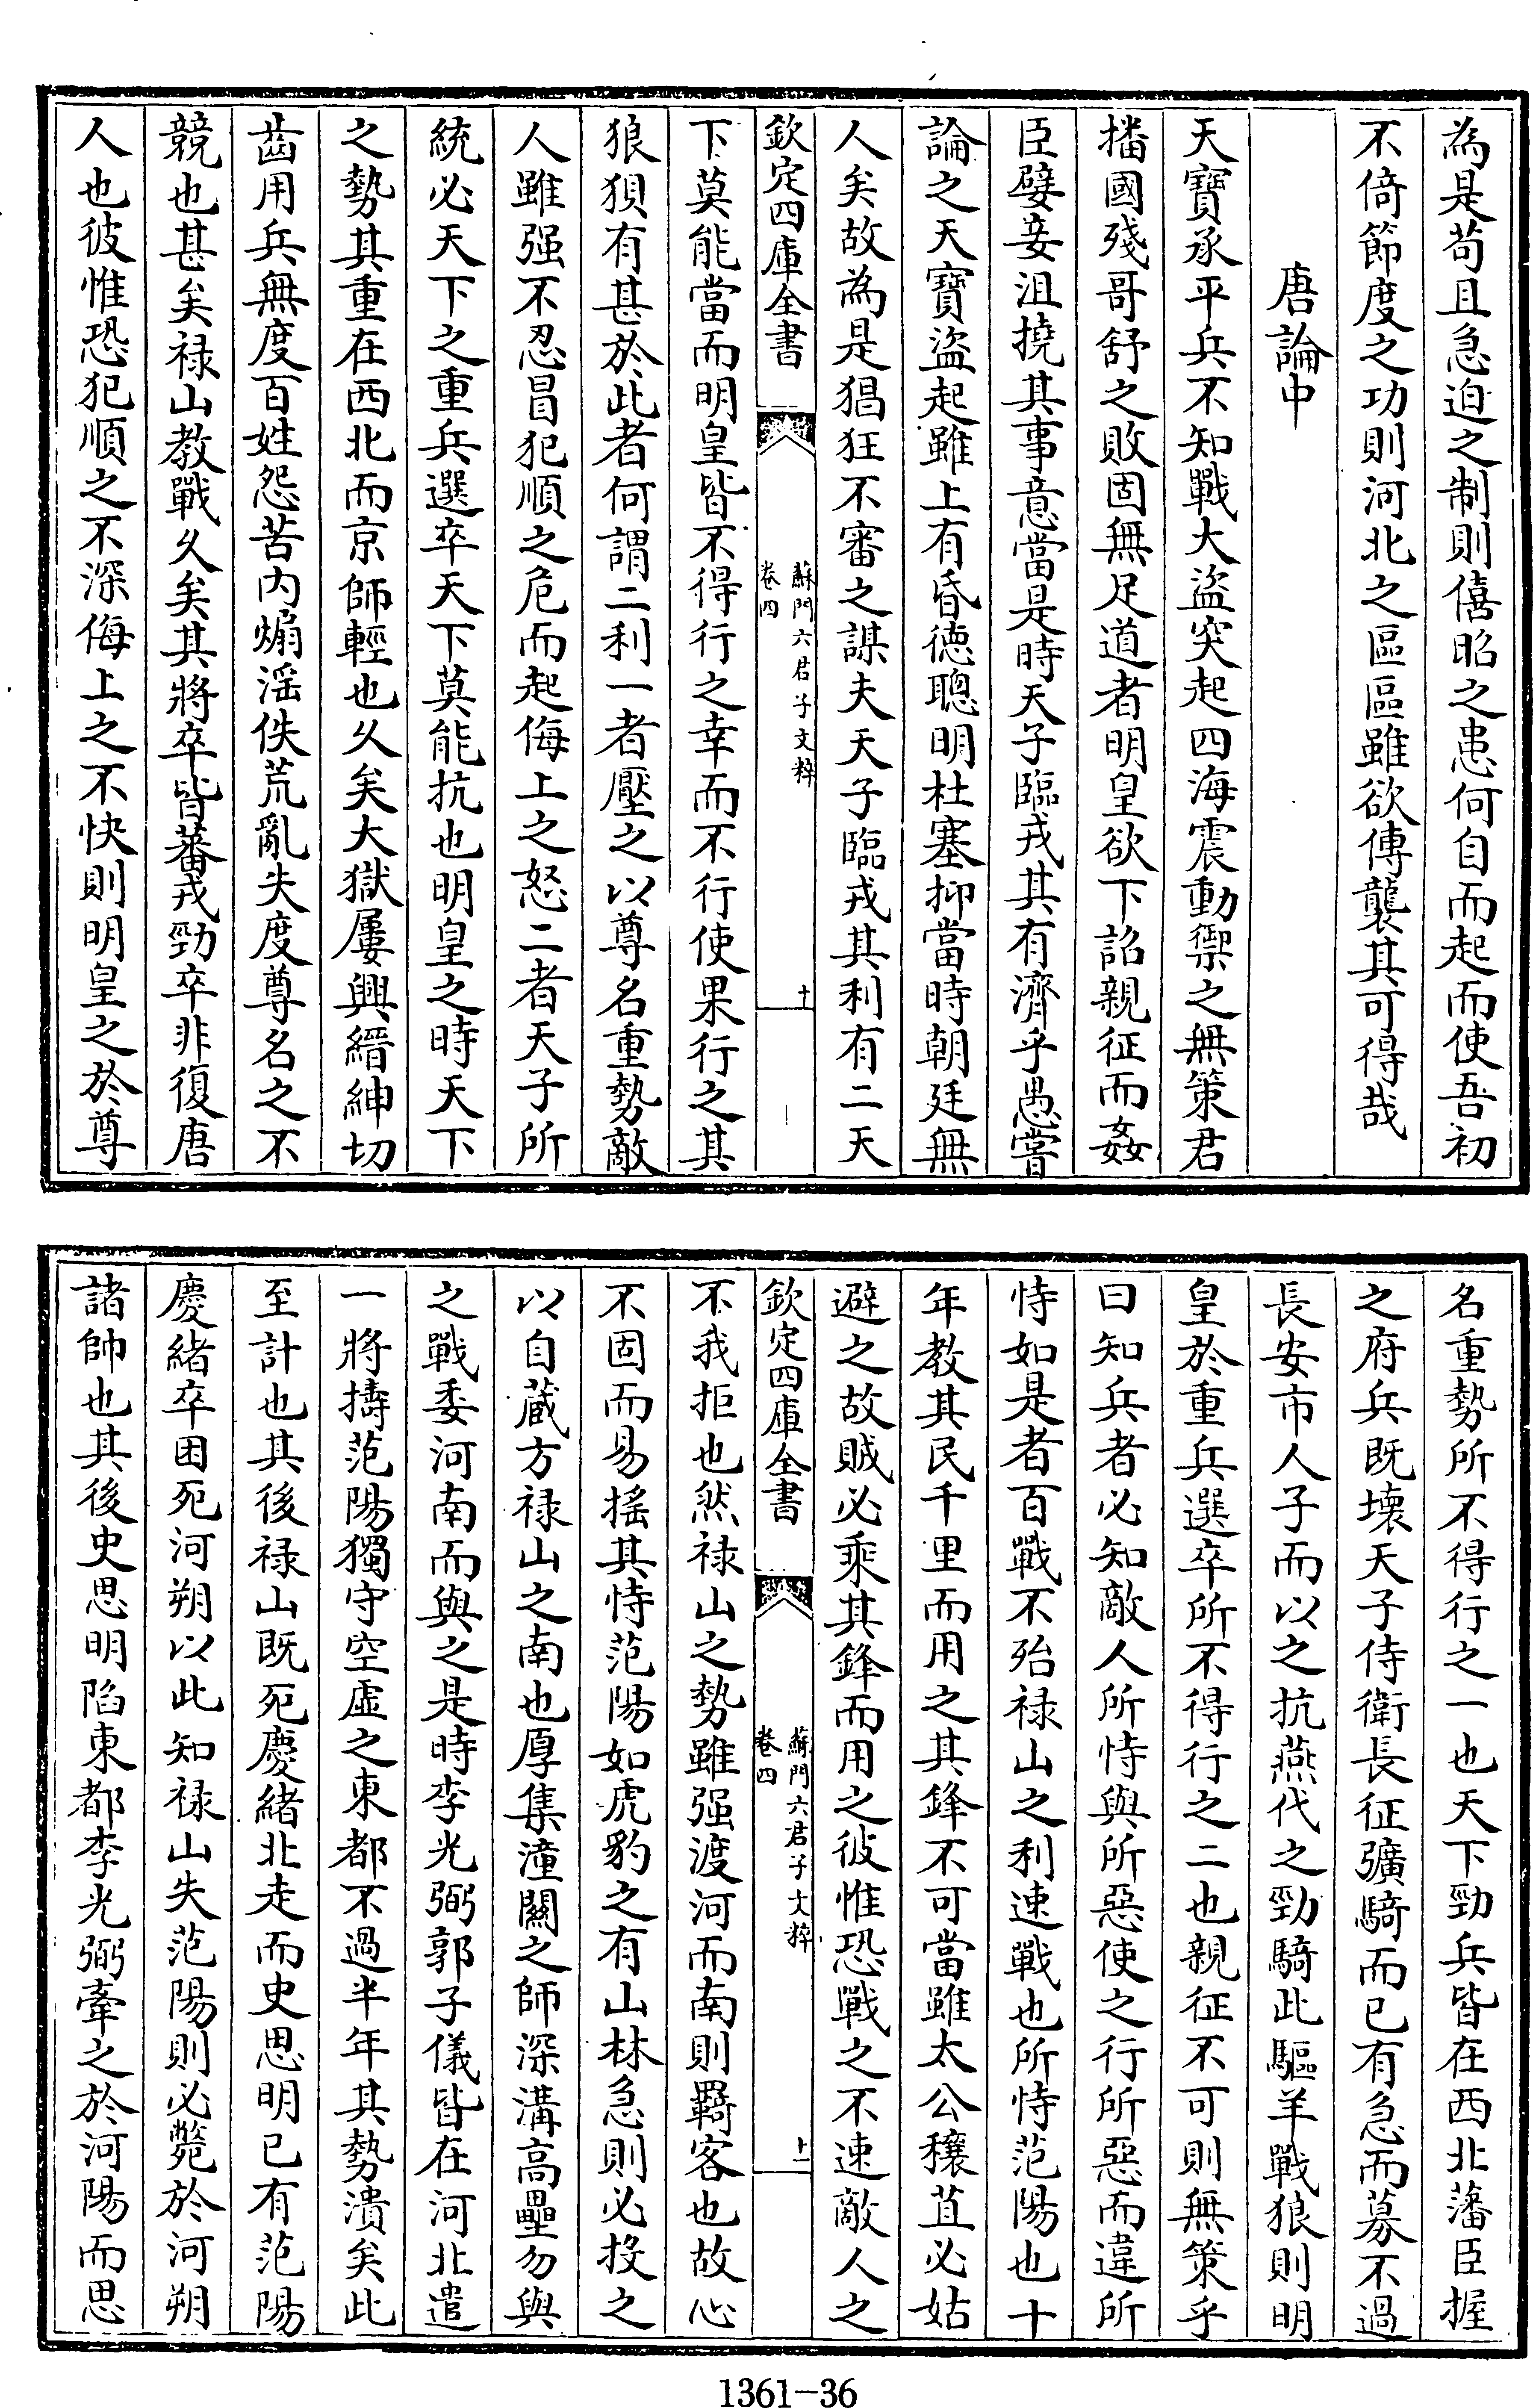 為是苟且急迫之制則僖昭之患何自而起而使吾初
不倚節度之功則河北之區區雖欲傳襲其可得哉
唐論中
天寶承平兵不知戰大盜突起四海震動禦之無策君
播國殘哥舒之敗固無足道者明皇欲下詔親征而姦
臣嬖妾沮撓其事意當是時天子臨戎其有濟乎愚嘗
論之天寶盜起雖上有昏德聰明杜塞抑當時朝廷無
人矣故為是猖狂不審之謀夫天子臨戎其利有二天
欽定四庫全書
蘇門六君子文粹
卷四
十
下莫能當而明皇皆不得行之幸而不行使果行之其
狼狽有甚於此者何謂二利一者壓之以尊名重勢敵
人雖强不忍冒犯順之危而起侮上之怒二者天子所
統必天下之重兵選卒天下莫能抗也明皇之時天下
之勢其重在西北而京師輕也久矣大獄屢興縉紳切
齒用兵無度百姓怨苦内煽淫佚荒亂失度尊名之不
競也甚矣禄山教戰久矣其將卒皆蕃戎勁卒非復唐
人也彼惟恐犯順之不深侮上之不快則明皇之於尊
名重勢所不得行之一也天下勁兵皆在西北藩臣握
之府兵既壞天子侍衛長征彍騎而已有急而募不過
長安市人子而以之抗燕代之勁騎此驅羊戰狼則明
皇於重兵選卒所不得行之二也親征不可則無策乎
曰知兵者必知敵人所恃與所惡使之行所惡而違所
恃如是者百戰不殆禄山之利速戰也所恃范陽也十
年教其民千里而用之其鋒不可當雖太公穰苴必姑
避之故賊必乘其鋒而用之彼惟恐戰之不速敵人之
欽定四庫全書
蘇門六君子文粹
卷四
十一
不我拒也然禄山之勢雖强渡河而南則羇客也故心
不固而易搖其恃范陽如虎豹之有山林急則必投之
以自蔵方禄山之南也厚集潼關之師深溝高壘勿與
之戰委河南而與之是時李光弼郭子儀皆在河北遣
一將擣范陽獨守空虚之東都不過半年其勢潰矣此
至計也其後禄山既死慶緒北走而史思明已有范陽
慶緒卒困死河朔以此知禄山失范陽則必斃於河朔
諸帥也其後史思明陷東都李光弼牽之於河陽而思
1361-36